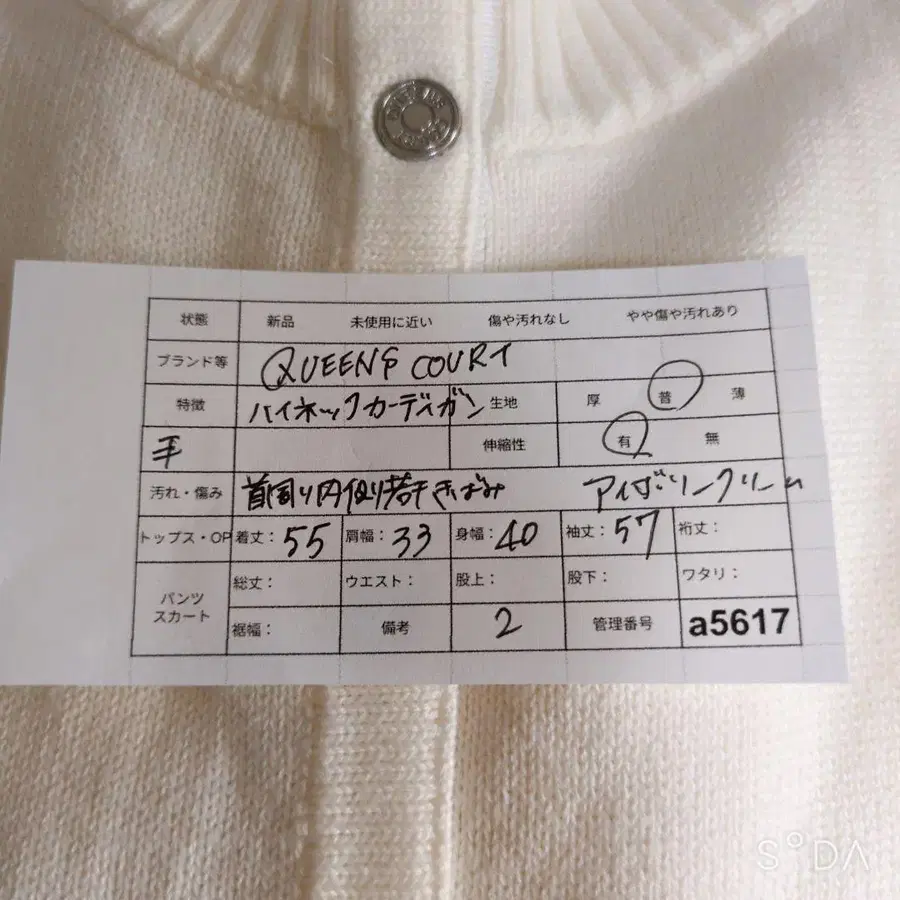 状態 新品 未使用に近い 傷や汚れなし やや傷や汚れあり
ブランド等 QUEENS COURT
特徴 ハイネックカーディガン 生地 厚 普 薄
手 伸縮性 有 無
汚れ・傷み 首周り内側若干きばみ アイボリークリーム
トップス・OP 着丈: 55 肩幅: 33 身幅: 40 袖丈: 57 裄丈:
パンツ スカート 総丈: ウエスト: 股上: 股下: ワタリ:
裾幅: 備考 2 管理番号 a5617
SODA